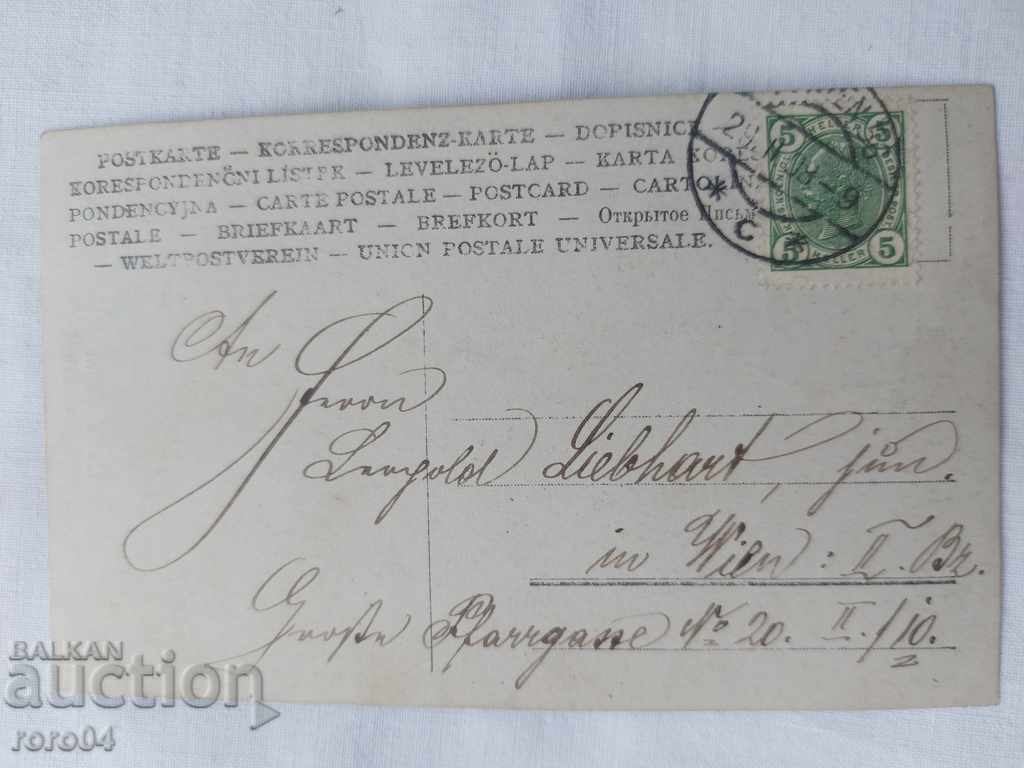 POSTKARTE — KORRESPONDENZ-KARTE — DOPISNICE
KORESPONDENČNI LÍSTEK — LEVELEZÖ-LAP — KARTA KORES-
PONDENCYJNA — CARTE POSTALE — POSTCARD — CARTOLINA
POSTALE — BRIEFKAART — BREFKORT — Открытое Письм
— WELTPOSTVEREIN — UNION POSTALE UNIVERSALE.
5 HELLER 5
5 HELLER 5
29
9
* C *
An
Herrn
Leopold Liebhart, jun.
in Wien: II. Bz.
Große Pfarrgasse No 20. II./10.
BALKAN
auction
roro04